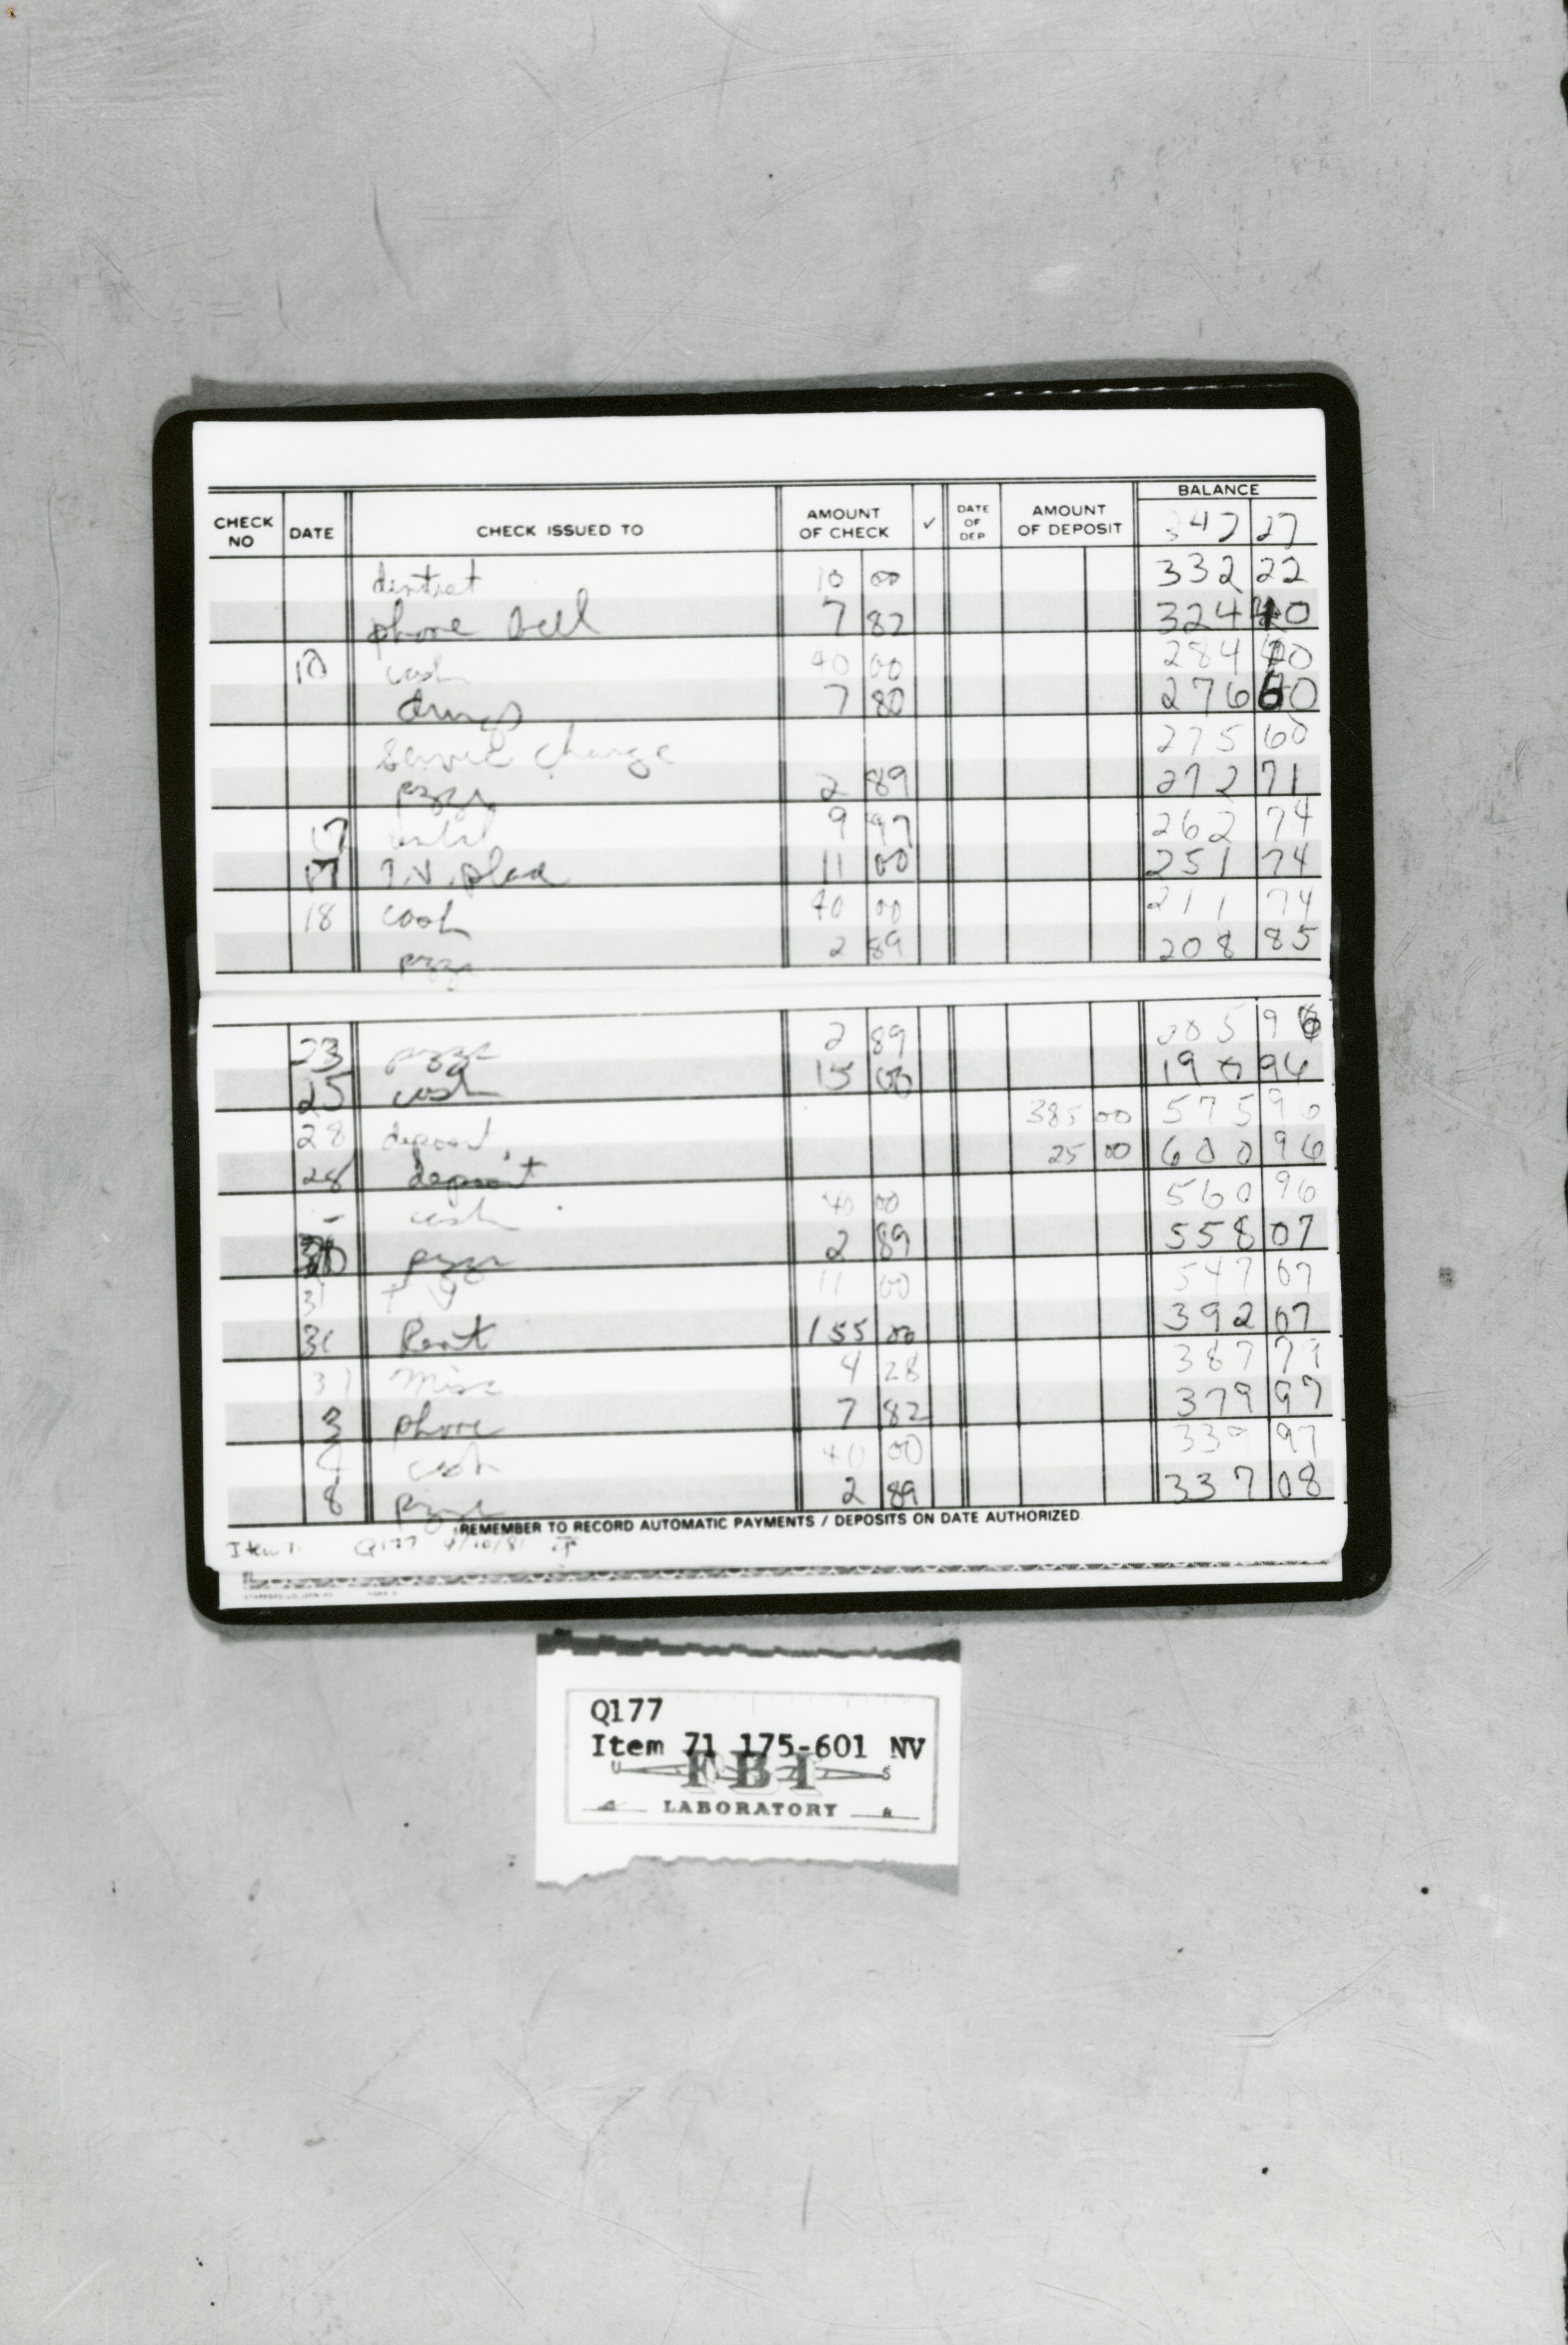 BALANCE
CHECK NO DATE CHECK ISSUED TO AMOUNT OF CHECK ✓ DATE OF DEP AMOUNT OF DEPOSIT 342 27
dentist 10 00 332 22
phone bell 7 82 324 40
10 cash 40 00 284 40
drugs 7 80 276 60
service charge 275 60
pizza 2 89 272 71
17 9 97 262 74
17 T.V. place 11 00 251 74
18 cash 40 00 211 74
pizza 2 89 208 85
23 pizza 2 89 205 96
25 cash 15 00 190 96
28 deposit 385 00 575 96
28 deposit 25 00 600 96
- cash 40 00 560 96
pizza 2 89 558 07
31 TV 11 00 547 07
31 Rent 155 00 392 07
31 Misc 4 28 387 79
3 phone 7 82 379 97
cash 40 00 339 97
8 pizza 2 89 337 08
REMEMBER TO RECORD AUTOMATIC PAYMENTS / DEPOSITS ON DATE AUTHORIZED.
Item 71 Q177 4/10/81
Q177
Item 71 175-601 NV
U S
FBI
LABORATORY